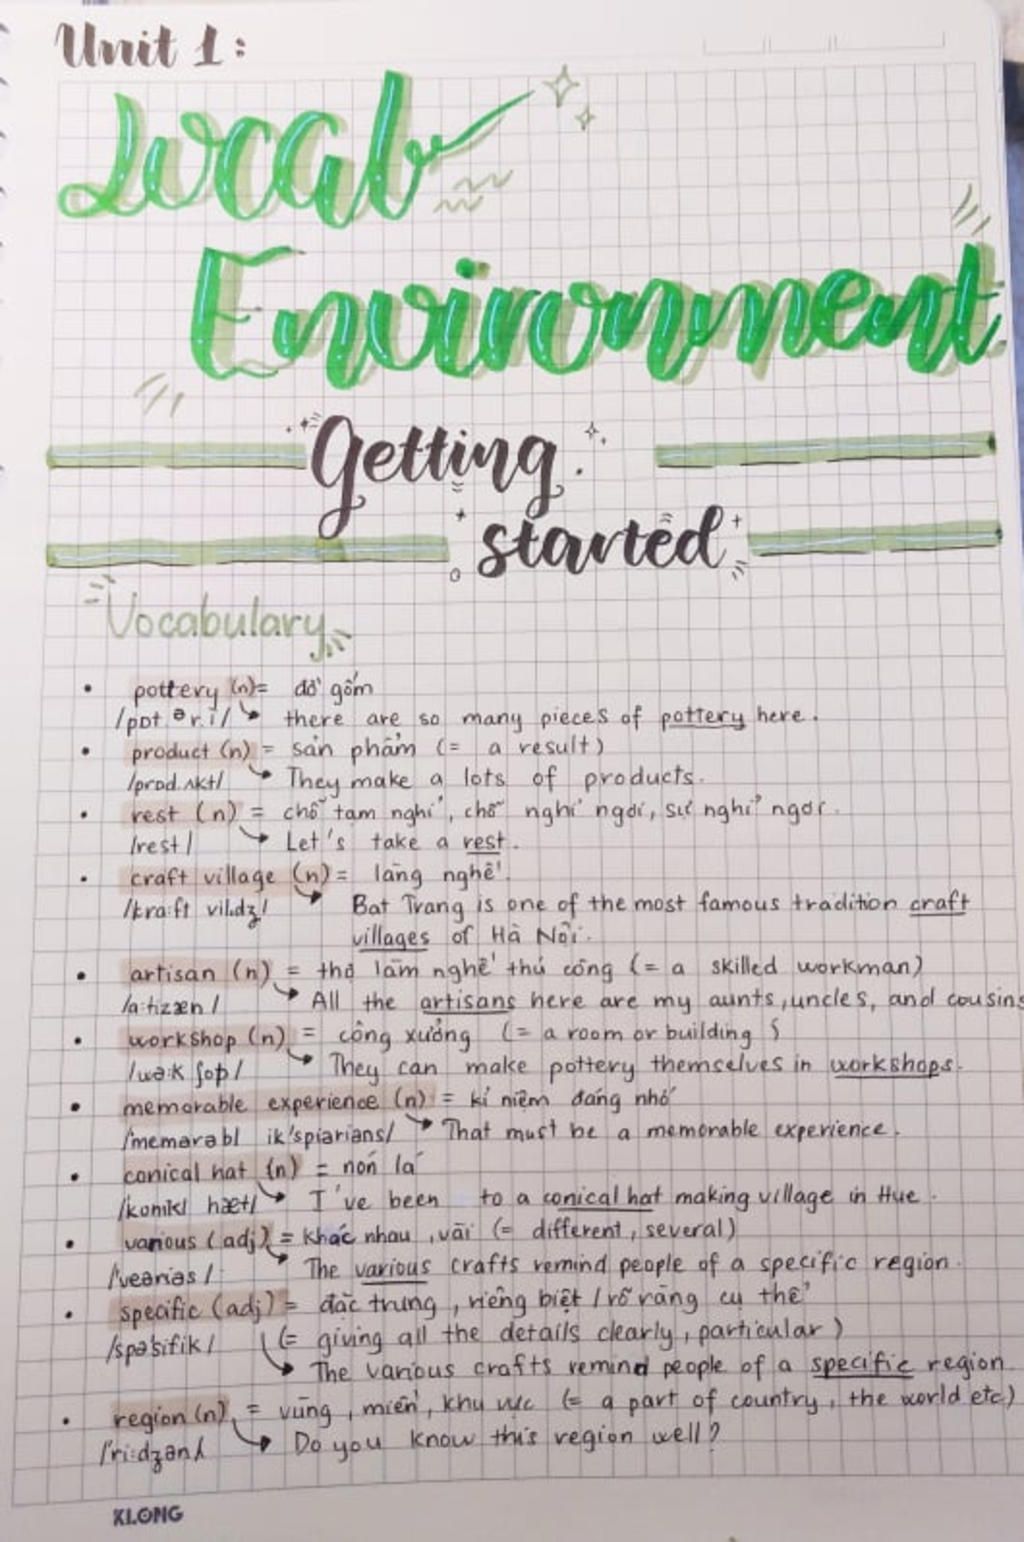 Unit 1:
Local
Environment
Getting
started
Vocabulary
• pottery (n)= đồ gốm
/pɒt.ər.i/ ↳ there are so many pieces of pottery here.
• product (n) = sản phẩm (= a result)
/prod.ʌkt/ ↳ They make a lots of products.
• rest (n) = chỗ tạm nghỉ, chỗ nghỉ ngơi, sự nghỉ ngơi.
/rest/ ↳ Let's take a rest.
• craft village (n)= làng nghề.
/kra:ft vilidʒ/ ↳ Bat Trang is one of the most famous tradition craft
villages of Hà Nội.
• artisan (n) = thợ làm nghề thủ công (= a skilled workman)
/a:tizæn/ ↳ All the artisans here are my aunts, uncles, and cousins
• workshop (n) = công xưởng (= a room or building
/wə:k ʃop/ ↳ They can make pottery themselves in workshops.
• memorable experience (n) = kỉ niệm đáng nhớ
/'memərəbl ik'spiəriəns/ ↳ That must be a memorable experience.
• conical hat (n) = nón lá
/konikl hæt/ ↳ I've been to a conical hat making village in Hue.
• various (adj) = khác nhau, vài (= different, several)
/'veəriəs/ ↳ The various crafts remind people of a specific region.
• specific (adj) = đặc trưng, riêng biệt / rõ ràng cụ thể
/spə'sifik/ (= giving all the details clearly, particular)
↳ The various crafts remind people of a specific region
• region (n) = vùng, miền, khu vực (= a part of country, the world etc)
/'ri:dʒən/ ↳ Do you know this region well?
KLONG